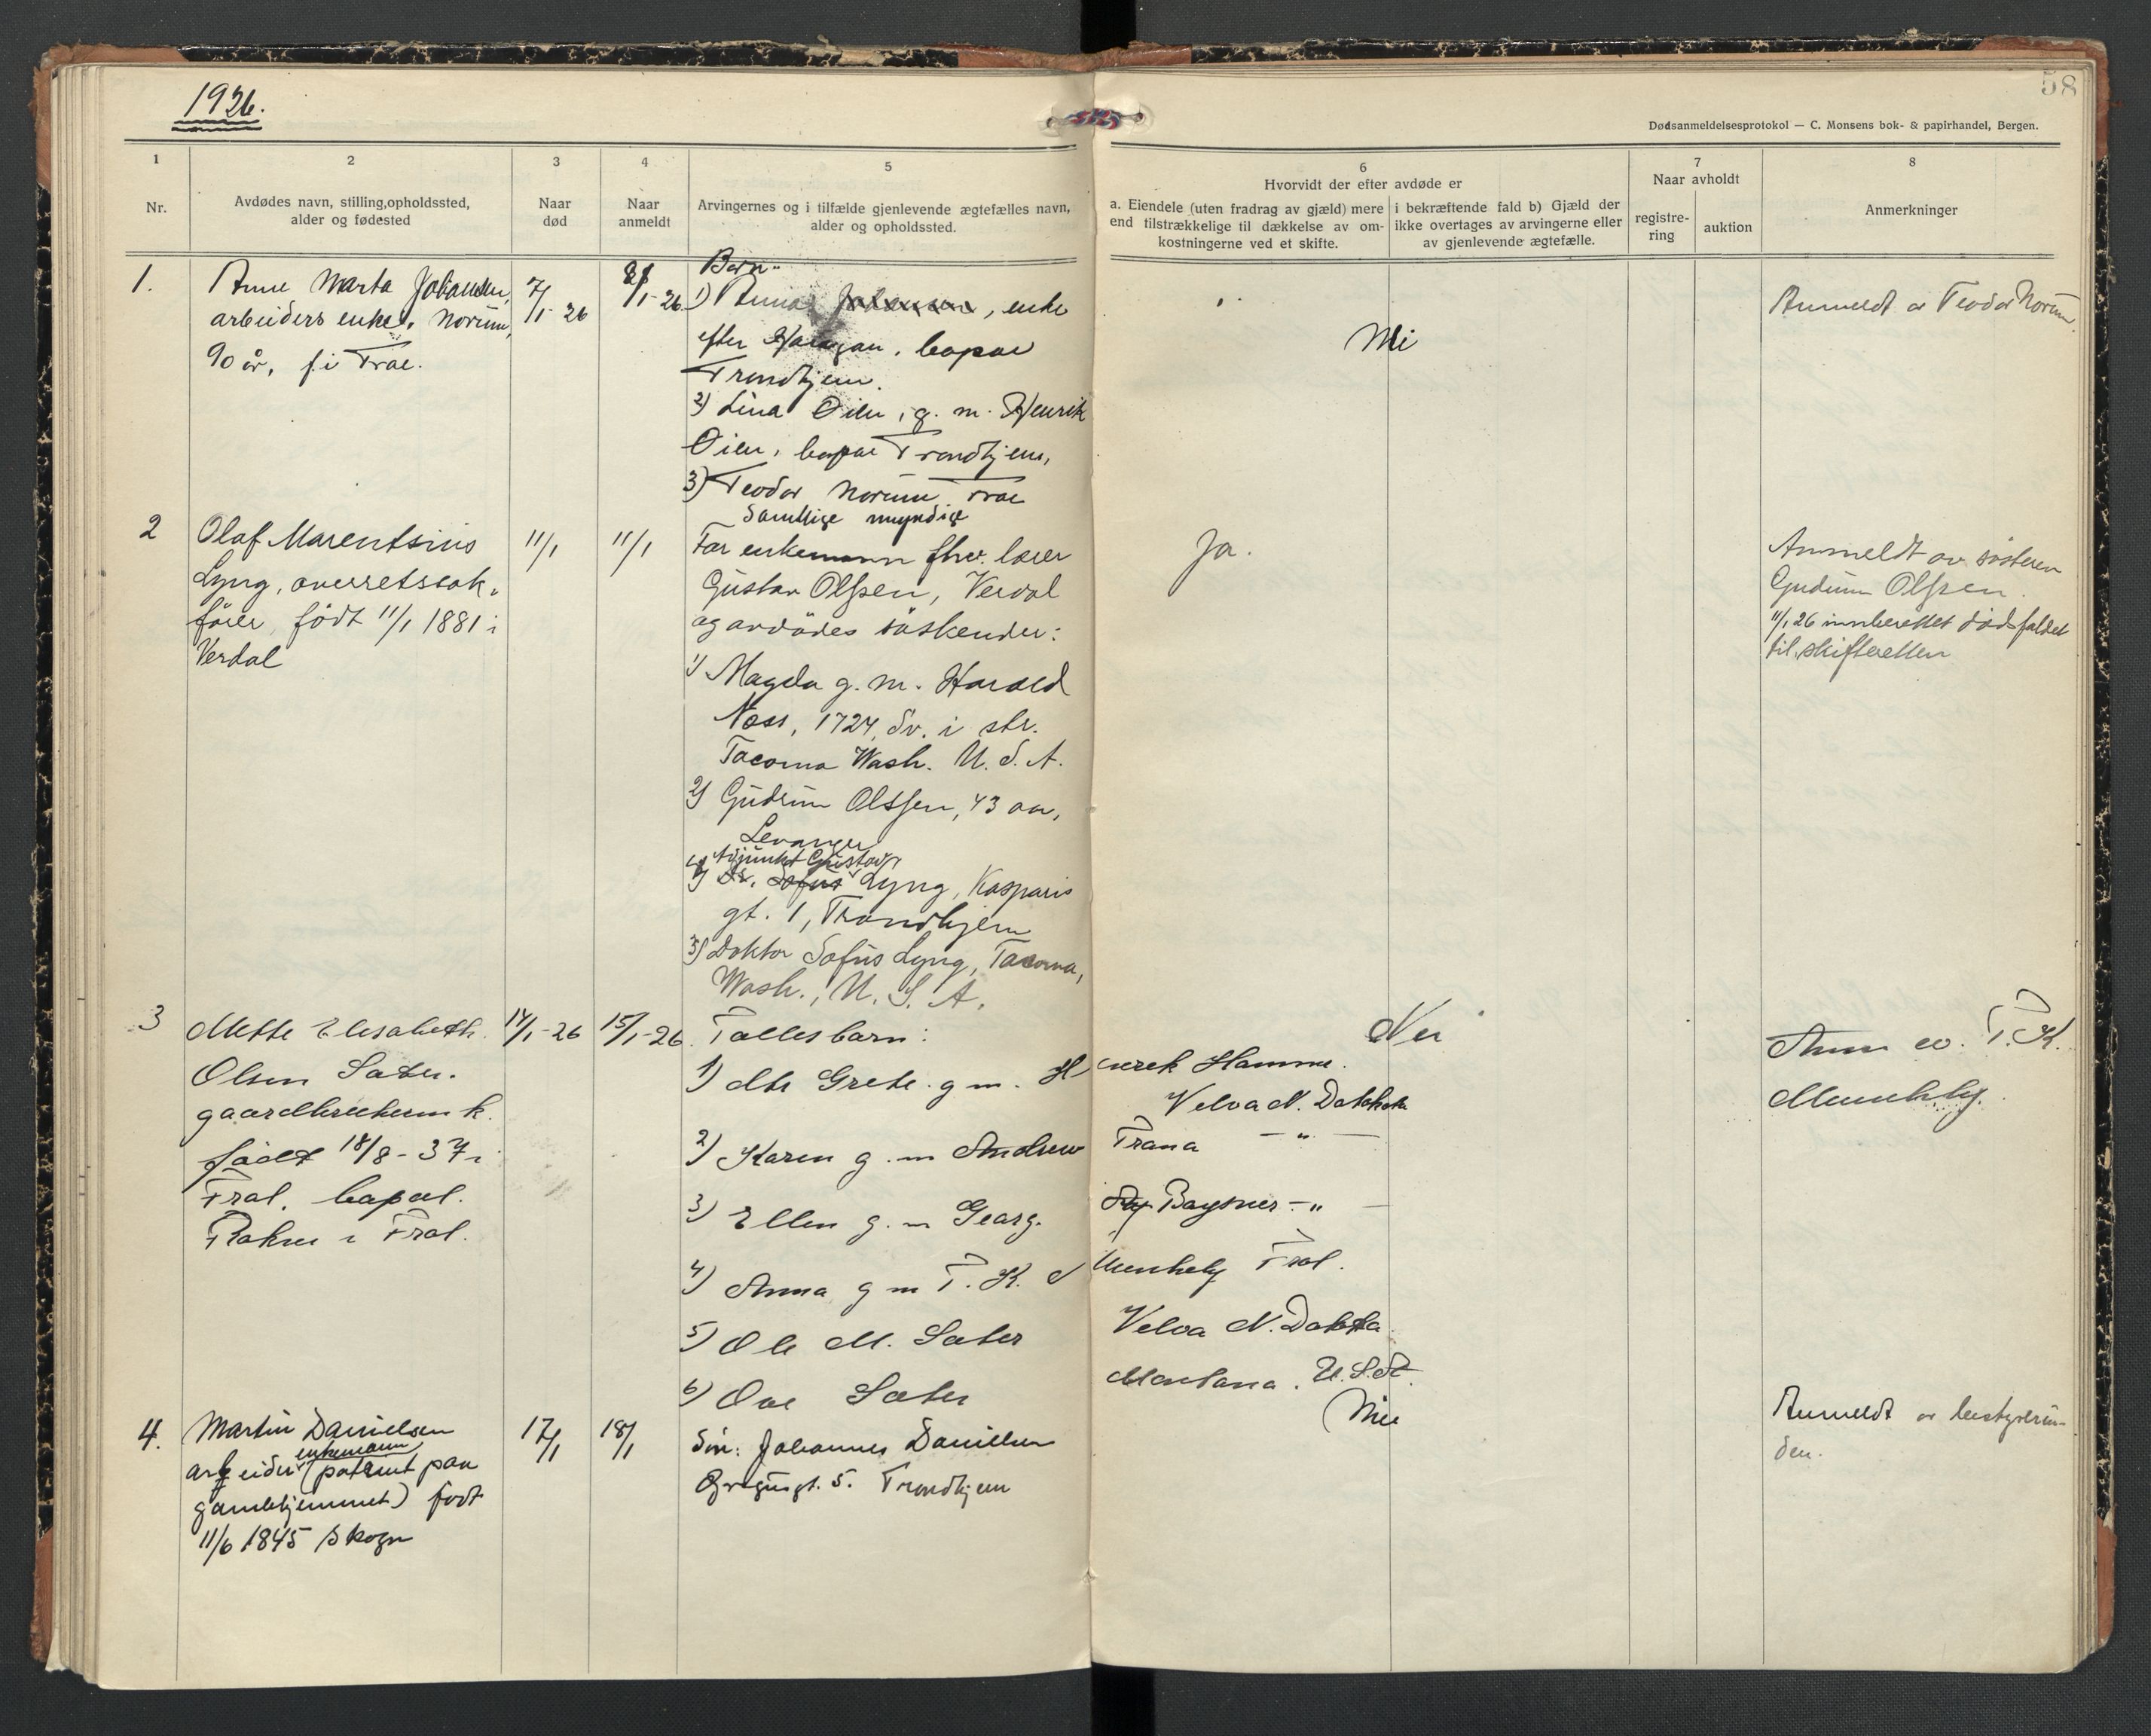 1926.
58
Dødsanmeldelsesprotokol — C. Monsens bok- & papirhandel, Bergen.
1
Nr.
2
Avdødes navn, stilling,opholdssted,
alder og fødested
3
Naar
død
4
Naar
anmeldt
5
Arvingernes og i tilfælde gjenlevende ægtefælles navn,
alder og opholdssted.
6
Hvorvidt der efter avdøde er
a. Eiendele (uten fradrag av gjæld) mere
end tilstrækkelige til dækkelse av om-
kostningerne ved et skifte.
i bekræftende fald b) Gjæld der
ikke overtages av arvingerne eller
av gjenlevende ægtefælle.
7
Naar avholdt
registre-
ring
auktion
8
Anmerkninger
1.
Anne Marta Johansen,
arbeiders enke, Norum,
90 år, f. i Frol.
7/1-26
8/1-26
Barn:
1) Anna Johansen, enke
efter, bopæl
Trondhjem.
2) Lina Øien, g. m. Henrik
Øien, bopæl Trondhjem,
3) Teodor Norum, Frol
Samtlige myndige
Nei
Anmeldt av Teodor Norum.
2
Olaf Marentsius
Lyng, overretssak-
fører, født 11/1 1881 i
Verdal
11/1
11/1
Far enkemann fhv. lærer
Gustav Olssen, Verdal
og avdödes söskender:
1) Magda g. m. Harald
Næss, 1724, Sv. i str.
Tacoma Wash. U. S. A.
2) Gudrun Olssen, 43 aar,
Levanger
4) Adjunkt Gustav
Dr. Sofus Lyng, Kasparis
gt. 1, Trondhjem
3) Doktor Sofus Lyng, Tacoma,
Wash., U. S. A.
Ja.
Anmeldt av søsteren
Gudrun Olssen.
11/1 26 innberettet dødsfaldet
til skifteretten
3
Mette Elisabeth
Olsen Sæter.
gaardbrukerenk.
født 18/8-37 i
Frol, bopæl.
i Frol.
14/1-26
15/1-26.
Fællesbarn:
1) Grete g m. Henrek Hamme.
Velva N. Dakkota
2) Karen g. m Andrew Trana — " —
3) Ellen g. m Gearg. Baysner — " —
4) Anna g m P. K. Munkeby Frol.
5) Ole M. Sæter Velva N. Dakota.
6) Ove Sæter Montana. U. S. A.
Nei
Anm av. P. K.
Munkeby.
4.
Martin Danielsen
enkemann
arbeider (patient paa
gamlehjemmet) født
11/6 1845 Skogn
17/1
18/1
Søn: Johannes Danielsen
gt. 5. Trondhjem
Nei
Anmeldt av bestyrerin-
den.